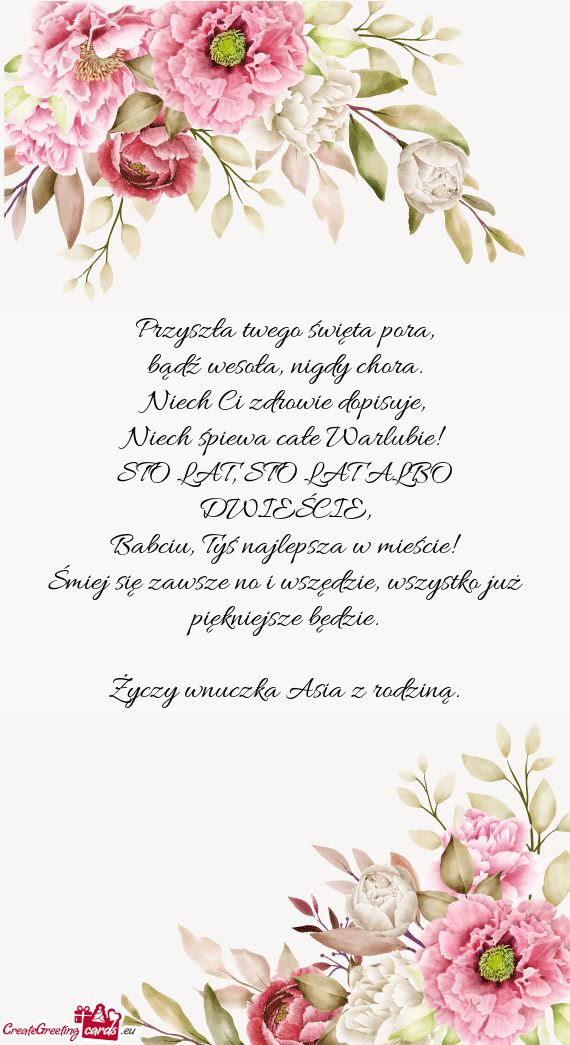 Przyszła twego święta pora,
bądź wesoła, nigdy chora.
Niech Ci zdrowie dopisuje,
Niech śpiewa całe Warlubie!
STO LAT, STO LAT ALBO
DWIEŚCIE,
Babciu, Tyś najlepsza w mieście!
Śmiej się zawsze no i wszędzie, wszystko już
piękniejsze będzie.
Życzy wnuczka Asia z rodziną.
CreateGreeting cards .eu